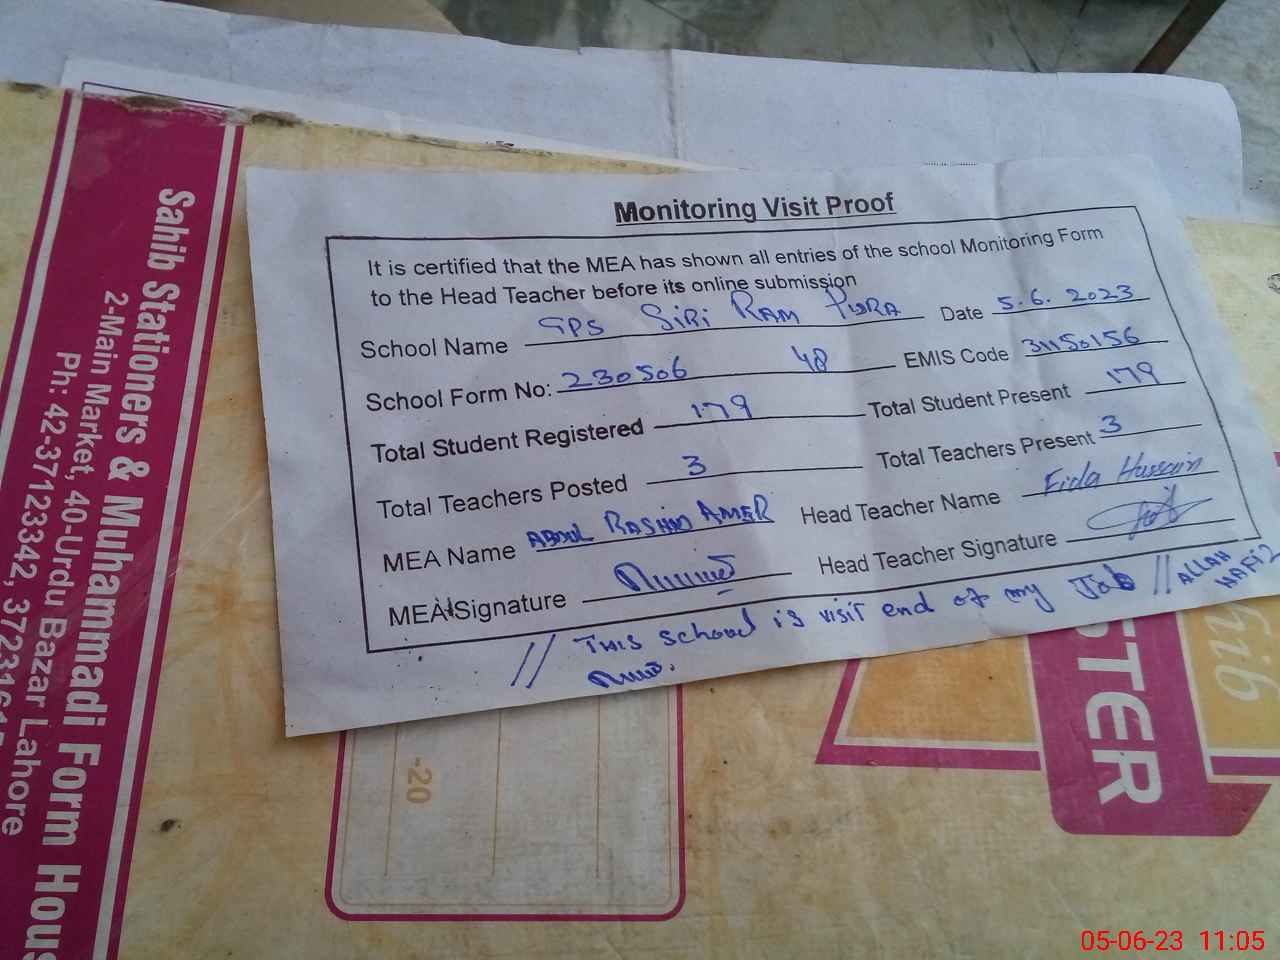 Monitoring Visit Proof
It is certified that the MEA has shown all entries of the school Monitoring Form
to the Head Teacher before its online submission
School Name GPS SiRi RAM Date 5.6.2023
School Form No: 230506 48 EMIS Code 31150156
Total Student Registered 179 Total Student Present 179
Total Teachers Posted 3 Total Teachers Present 3
MEA Name ABDUL RASHID AMER Head Teacher Name Fida Hussain
MEA Signature Head Teacher Signature
// THIS school is visit end of my Job // ALLAH HAFiZ
Sahib Stationers & Muhammadi Form Hous
2-Main Market, 40-Urdu Bazar Lahore
Ph: 42-37123342, 3723164
-20
STER
hib
05-06-23 11:05